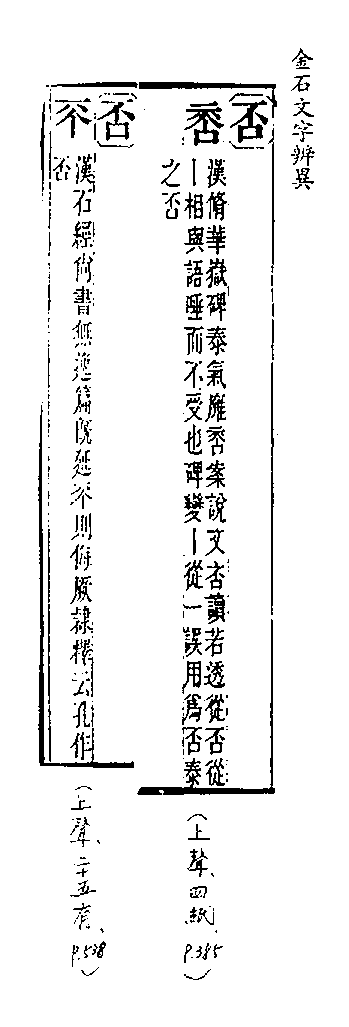 金石文字辨異
否 㕻
漢脩華嶽碑泰氣雁㕻案說文㕻讀若透從否從
丨相與語唾而不受也碑變丨從一誤用爲否泰
之否
(上聲、四紙、P.385)
否 不
漢石經尚書無逸篇旣延不則侮厥隸釋云孔作
否
(上聲、二十五有、P.538)